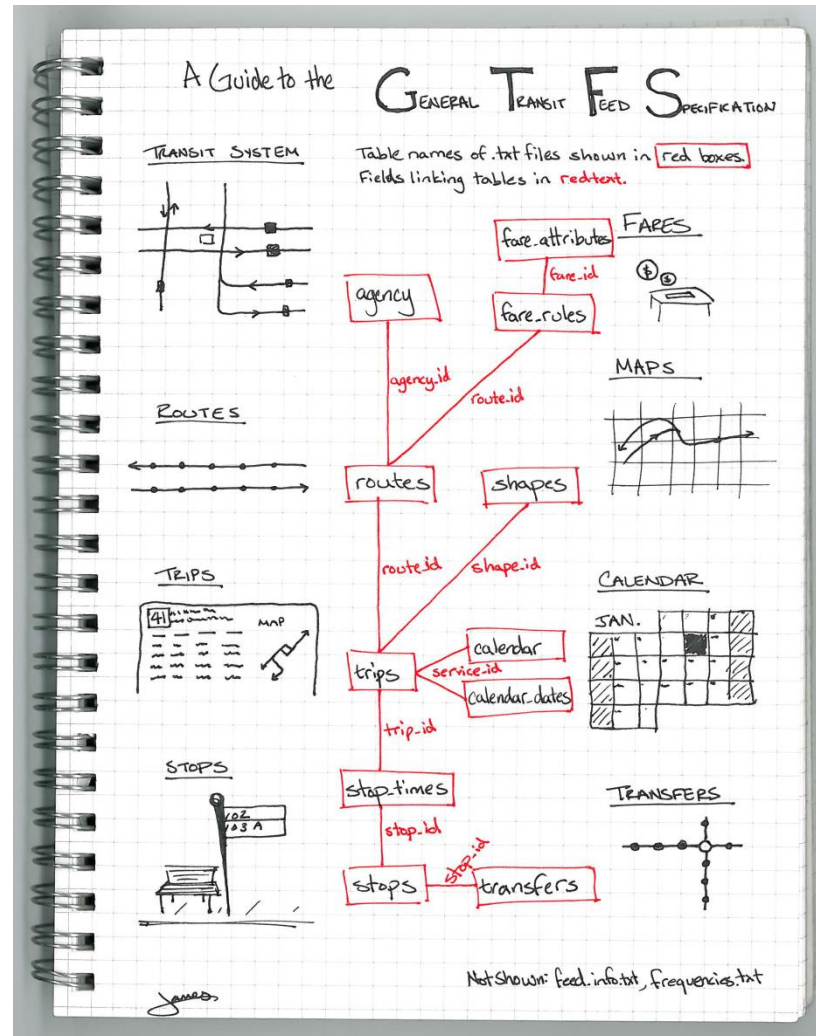 A Guide to the
GENERAL TRANSIT FEED SPECIFICATION
TRANSIT SYSTEM
Table names of .txt files shown in red boxes.
Fields linking tables in red text.
FARES
fare_attributes
fare_id
agency
fare_rules
MAPS
agency_id
route_id
ROUTES
routes
shapes
route_id
shape_id
TRIPS
CALENDAR
41
MAP
JAN.
calendar
trips
service_id
calendar_dates
trip_id
STOPS
stop_times
TRANSFERS
102
103 A
stop_id
stop_id
stops
transfers
Not shown: feed_info.txt, frequencies.txt
James